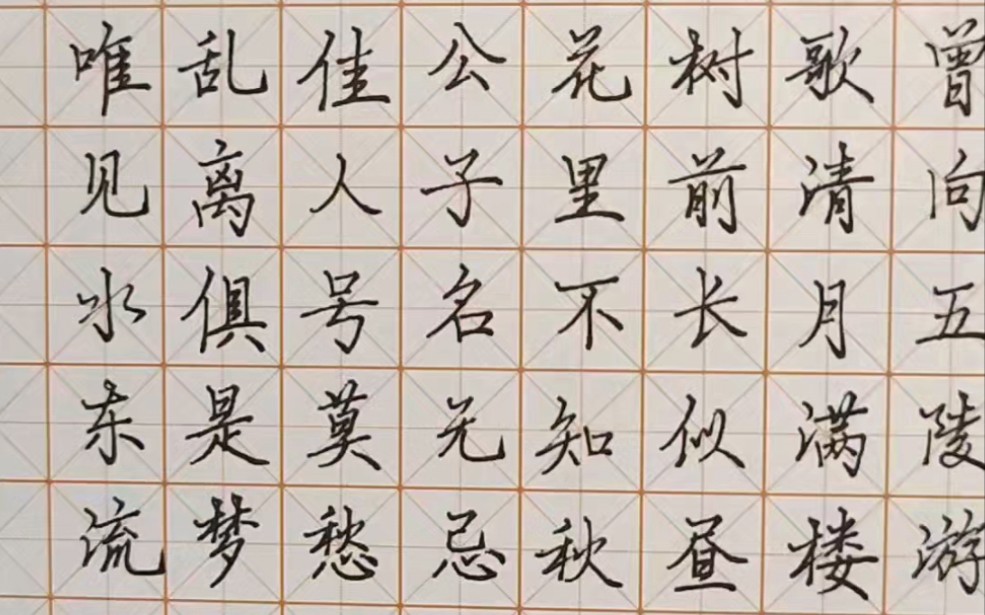 曾向五陵游
歌清月满楼
树前长似昼
花里不知秋
公子名无忌
佳人号莫愁
乱离俱是梦
唯见水东流